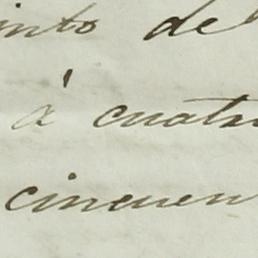 into de
á cuatr
cincuen